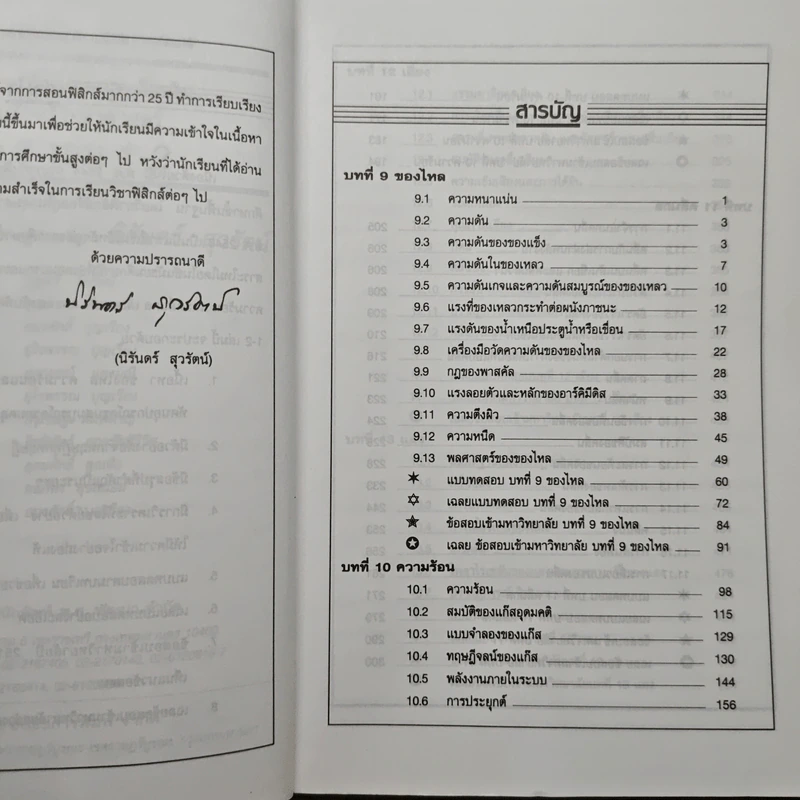 จากการสอนฟิสิกส์มากกว่า 25 ปี ทำการเรียบเรียง
นี้ขึ้นมาเพื่อช่วยให้นักเรียนมีความเข้าใจในเนื้อหา
การศึกษาขั้นสูงต่อๆ ไป หวังว่านักเรียนที่ได้อ่าน
มสำเร็จในการเรียนวิชาฟิสิกส์ต่อๆ ไป
ด้วยความปรารถนาดี
(นิรันดร์ สุวรัตน์)
สารบัญ
บทที่ 9 ของไหล
9.1 ความหนาแน่น 1
9.2 ความดัน 3
9.3 ความดันของของแข็ง 3
9.4 ความดันในของเหลว 7
9.5 ความดันเกจและความดันสมบูรณ์ของของเหลว 10
9.6 แรงที่ของเหลวกระทำต่อผนังภาชนะ 12
9.7 แรงดันของน้ำเหนือประตูน้ำหรือเขื่อน 17
9.8 เครื่องมือวัดความดันของของไหล 22
9.9 กฎของพาสคัล 28
9.10 แรงลอยตัวและหลักของอาร์คิมีดิส 33
9.11 ความตึงผิว 38
9.12 ความหนืด 45
9.13 พลศาสตร์ของของไหล 49
แบบทดสอบ บทที่ 9 ของไหล 60
เฉลยแบบทดสอบ บทที่ 9 ของไหล 72
ข้อสอบเข้ามหาวิทยาลัย บทที่ 9 ของไหล 84
เฉลย ข้อสอบเข้ามหาวิทยาลัย บทที่ 9 ของไหล 91
บทที่ 10 ความร้อน
10.1 ความร้อน 98
10.2 สมบัติของแก๊สอุดมคติ 115
10.3 แบบจำลองของแก๊ส 129
10.4 ทฤษฎีจลน์ของแก๊ส 130
10.5 พลังงานภายในระบบ 144
10.6 การประยุกต์ 156